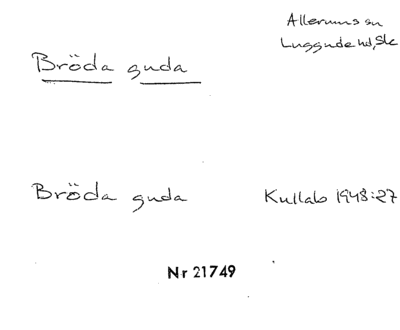 Allerums sn
Luggude hd, Sk
Bröda guda
Bröda guda
Kullab 1948:27
Nr 21749